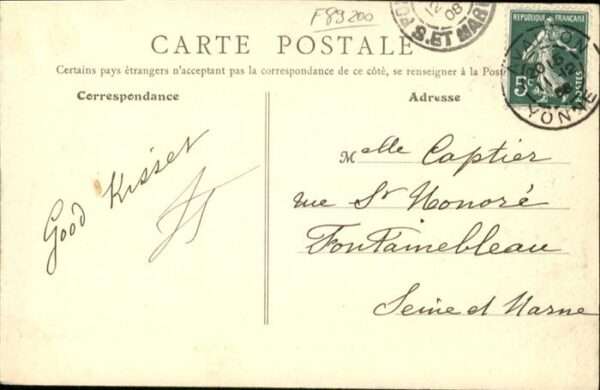 F89200
08
S. ET MAR
RÉPUBLIQUE FRANÇAISE
5c
POSTES
YONNE
CARTE POSTALE
Certains pays étrangers n'acceptant pas la correspondance de ce côté, se renseigner à la Poste
Correspondance
Adresse
Good Kisses
Melle Captier
rue St Honoré
Fontainebleau
Seine et Marne